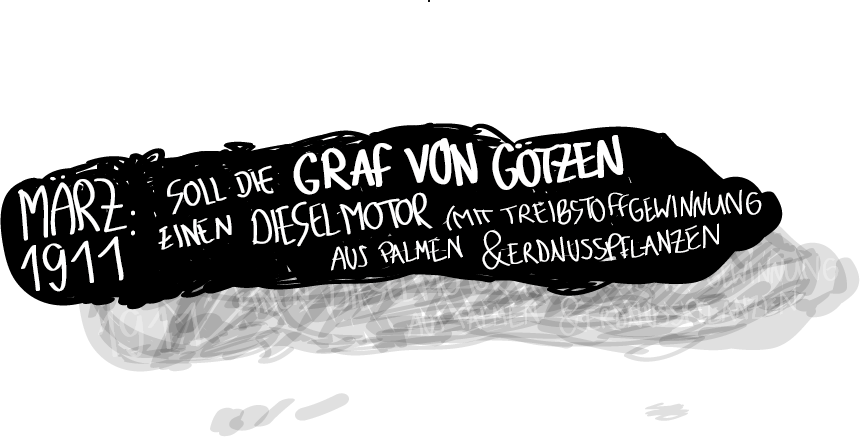 MÄRZ:
1911
SOLL DIE GRAF VON GÖTZEN
EINEN DIESELMOTOR (MIT TREIBSTOFFGEWINNUNG
AUS PALMEN & ERDNUSSPFLANZEN